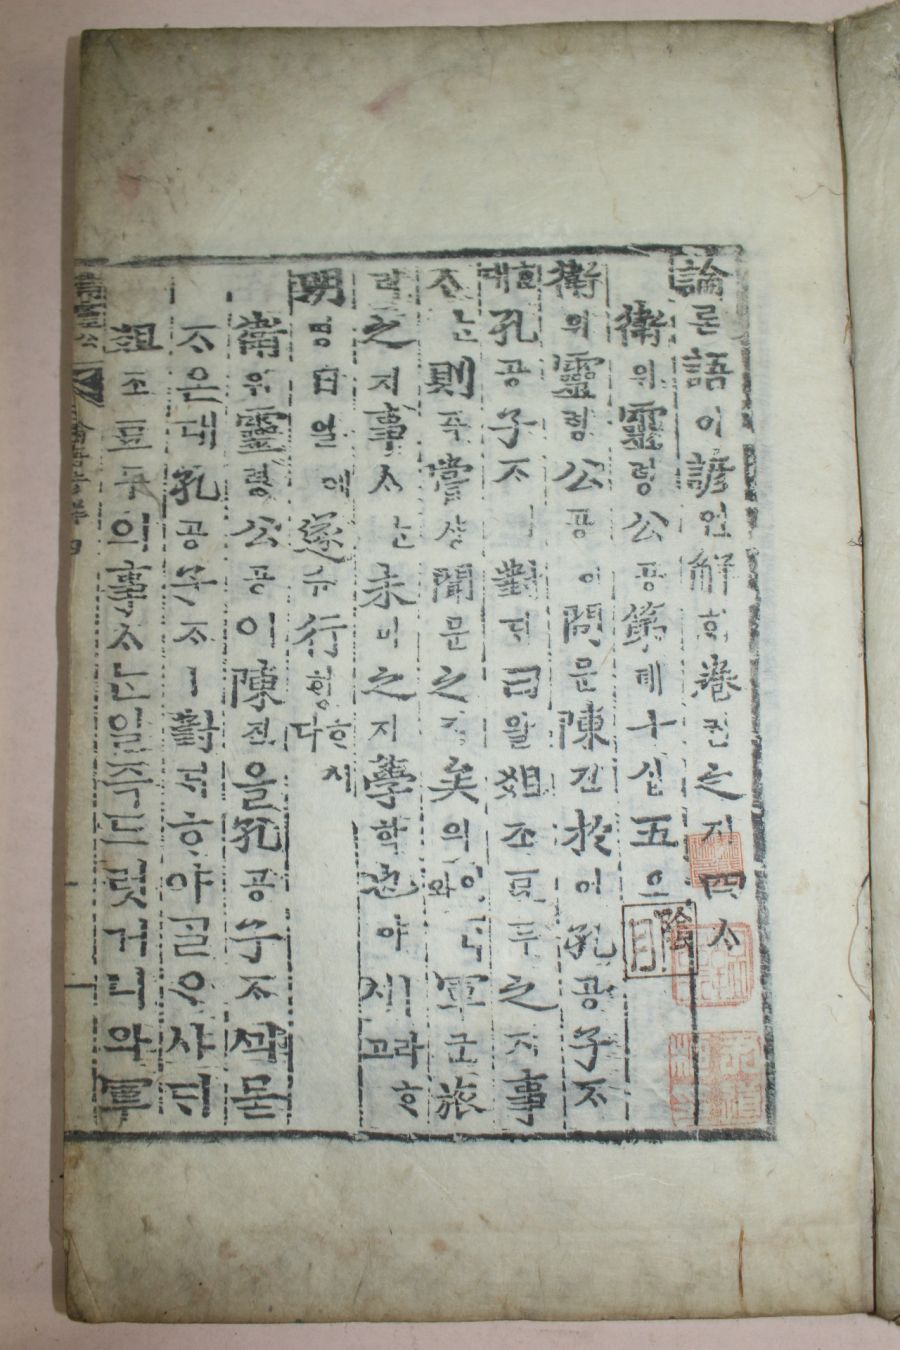 論론語어諺언解해卷권之지四ᄉᆞ
衛위靈령公공第뎨十십五오
衛위靈령公공이問문陳딘於어孔공子ᄌᆞ
ᄒᆞᆫ대孔공子ᄌᆞㅣ對ᄃᆡ曰왈俎조豆두之지事
ᄉᆞᄂᆞᆫ則즉嘗샹聞문之지矣의와軍군旅
려之지事ᄉᆞᄂᆞᆫ未미之지學ᄒᆞᆨ也야ㅣ라ᄒᆞ시고
明명日일에遂슈行ᄒᆡᆼᄒᆞ시다
衛위靈령公공이陳딘을孔공子ᄌᆞᄭᅴ묻
ᄌᆞ온대孔공子ᄌᆞㅣ對ᄃᆡᄒᆞ야ᄀᆞᆯᄋᆞ샤ᄃᆡ
俎조豆두의事ᄉᆞᄂᆞᆫ일즉드럿거니와軍
衛靈公 論語諺解四